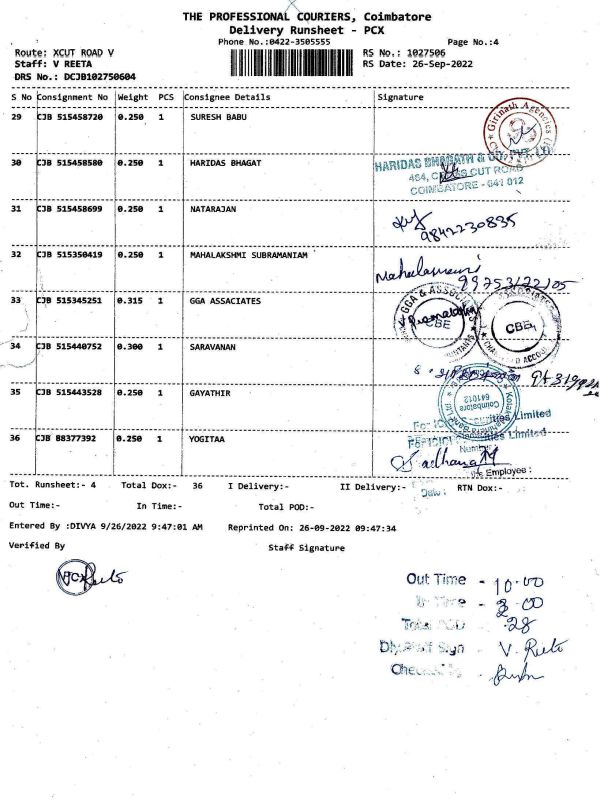 THE PROFESSIONAL COURIERS, Coimbatore
Delivery Runsheet - PCX
Phone No.:0422-3505555 Page No.:4
Route: XCUT ROAD V RS No.: 1027506
Staff: V REETA RS Date: 26-Sep-2022
DRS No.: DCJB102750604
S No Consignment No Weight PCS Consignee Details Signature
29 CJB 515458720 0.250 1 SURESH BABU
Girinath Agencies
30 CJB 515458580 0.250 1 HARIDAS BHAGAT
HARIDAS BHAGATH & CO. PVT. LTD
COIMBATORE - 641 012
31 CJB 515458699 0.250 1 NATARAJAN
9842230835
32 CJB 515350419 0.250 1 MAHALAKSHMI SUBRAMANIAM
33 CJB 515345251 0.315 1 GGA ASSACIATES
GGA & ASSOCIATES
CBE
CBE
34 CJB 515440752 0.300 1 SARAVANAN
35 CJB 515443528 0.250 1 GAYATHIR
Coimbatore
641012
For ICICI Securities Limited
36 CJB 88377392 0.250 1 YOGITAA
For ICICI Securities Limited
Number
Sadhana M
Employee :
Date :
Tot. Runsheet:- 4 Total Dox:- 36 I Delivery:- II Delivery:- RTN Dox:-
Out Time:- In Time:- Total POD:-
Entered By :DIVYA 9/26/2022 9:47:01 AM Reprinted On: 26-09-2022 09:47:34
Verified By Staff Signature
Out Time - 10.00
In Time - 3.00
Total POD - 28
Dly Staff Sign - V. Reeta